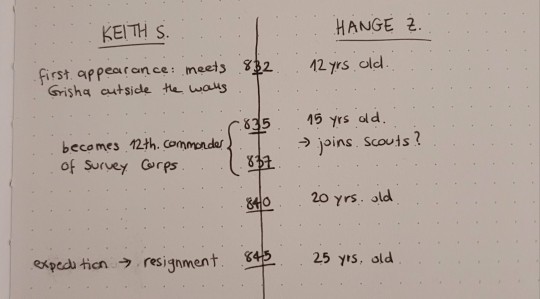 KEITH S.
HANGE Z.
first appearance: meets 832 12 yrs old.
Grisha outside the walls
835 15 yrs old.
becomes 12th. commander → joins scouts?
of Survey Corps. 837
840 20 yrs. old
expedition → resignment 845 25 yrs. old